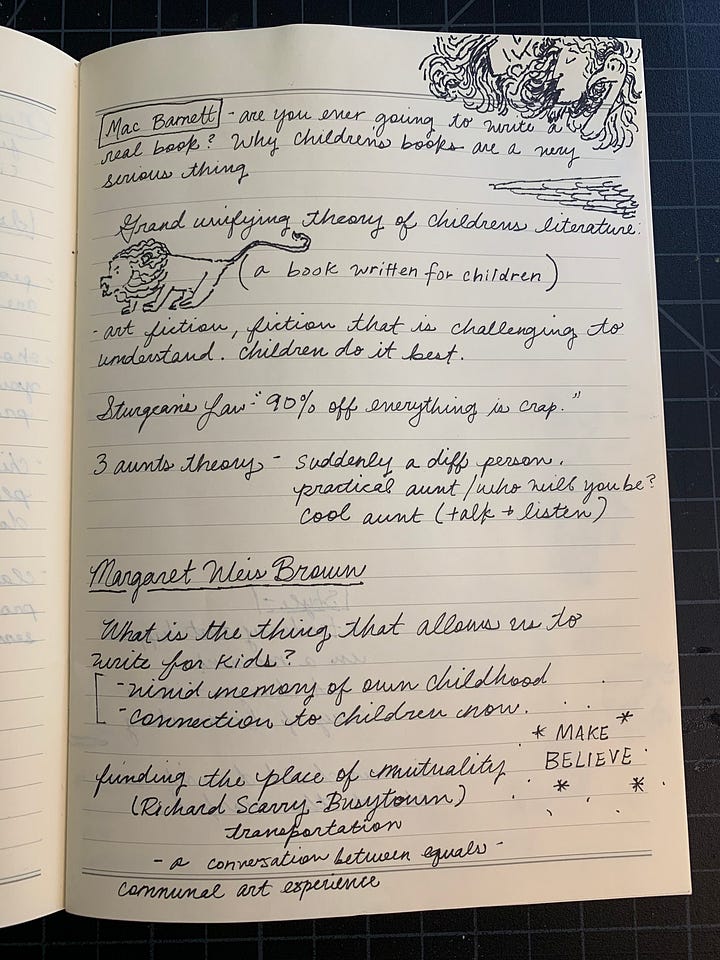 Mac Barnett - are you ever going to write a
real book? Why children's books are a very
serious thing
Grand unifying theory of childrens literature:
(a book written for children)
- art fiction, fiction that is challenging to
understand. Children do it best.
Sturgeon's Law - "90% off everything is crap."
3 aunts theory - suddenly a diff person.
practical aunt / who will you be?
cool aunt (talk + listen)
Margaret Weis Brown
What is the thing that allows us to
write for kids?
- vivid memory of own childhood
- connection to children now.
* MAKE *
BELIEVE
* *
finding the place of mutuality
(Richard Scarry - Busytown)
transportation
- a conversation between equals -
communal art experience